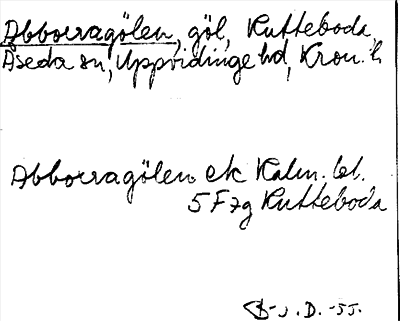 Abborragölen, göl, Rutteboda,
Åseda sn, Uppvidinge hd, Kron. l.
Abborragölen ek Kalm. bl.
5F7g Rutteboda
B-J. D. -55.